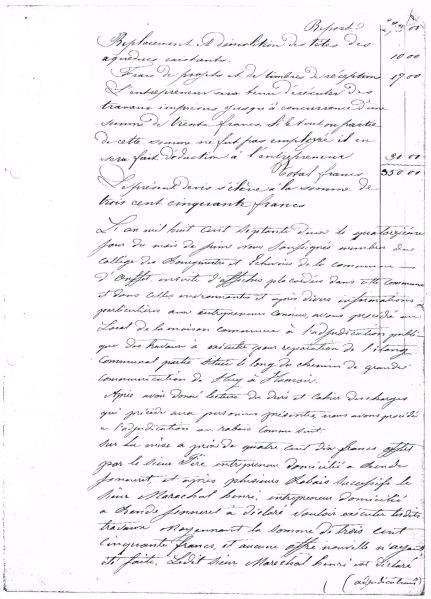 Report 293 00
Replacement et démolition des têtes des
aqueducs existants. 10 00
Frais de projets et de timbres de réception 17 00
L'entrepreneur sera tenu d'exécuter des
travaux imprévus jusqu'à concurrence d'une
somme de trente francs. Si le tout ou partie
de cette somme ne fut pas employée il en
sera fait déduction à l'entrepreneur 30 00
Total francs 350 00
Le présent devis s'élève à la somme de
trois cent cinquante francs
L'an mil huit cent septante deux le quatorzième
jour du mois de juin nous soussignés membres du
collège des Bourgmestre et Echevins de la commune
d'Ouffet, ensuite d'affiches placardées dans cette commune
et dans celles environnantes et après divers informations
particulières aux entrepreneurs connus, avons procédé au
Local de la maison commune à l'adjudication publi-
que des travaux à exécuter pour réparation de l'étang
communal partie située le long du chemin de grande
communication de Huy à Hamoir.
Après avoir donné lecture du devis et cahier des charges
qui précède aux personnes présentes, nous avons procédé
à l'adjudication au rabais comme suit.
Sur la mise à prix de quatre cent dix francs offert
par le sieur Pire entrepreneur domicilié à Bende
Jenneret, et après plusieurs Rabais successifs le
Sieur Maréchal henri, entrepreneur domicilié
à Bende Jenneret à déclaré vouloir exécuter lesdits
travaux Moyennant la somme de trois cent
cinquante francs, et aucune offre nouvelle n'ayant
été faite, Ledit Sieur Maréchal henri est déclaré
(adjudicataire)